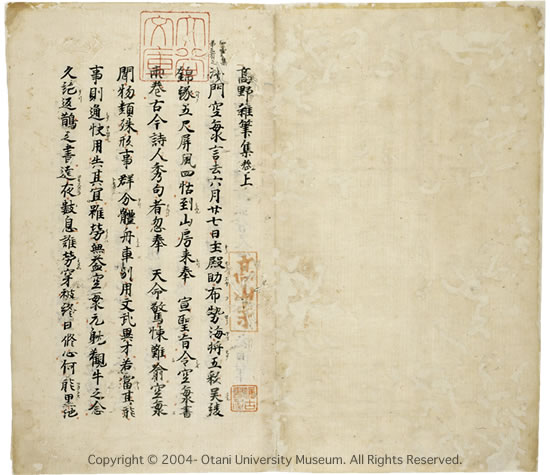 高野雜筆集卷上
沙門空海言去六月廿七日主殿助布勢海將五彩吳綾
錦緣五尺屏風四帖到山房来奉 宣聖旨令空海書
兩卷古今詩人秀句者忽奉 天命驚悚難喩空海
聞物類殊形事群分體舟車別用文武異才若當其能
事則通快用失其宜雖勞無益空海元耽觀牛之念
久絶返鵲之書達夜數息誰勞穿被終日修心何能墨池
高山寺
Copyright © 2004- Otani University Museum. All Rights Reserved.